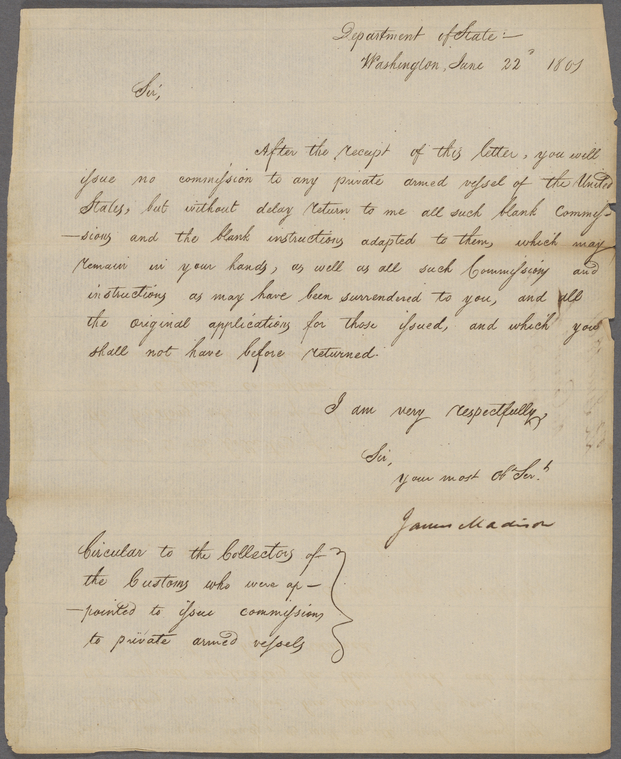 Department of State:—
Washington, June 22ᵈ 1801
Sir,
After the receipt of this letter, you will
issue no commission to any private armed vessel of the United
States, but without delay return to me all such blank Commis-
-sions and the blank instructions adapted to them, which may
remain in your hands, as well as all such Commissions and
instructions as may have been surrendered to you, and all
the original applications for those issued, and which you
shall not have before returned.
I am very respectfully,
Sir,
your most Obᵗ Serᵗ
James Madison
Circular to the Collectors of
the Customs who were ap-
-pointed to issue commissions
to private armed vessels